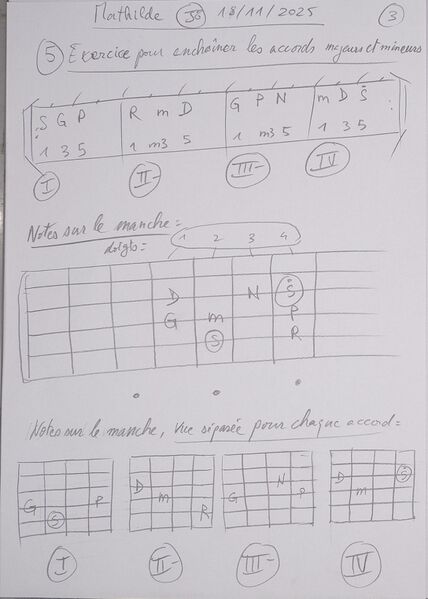 Mathilde JG 18/11/2025 3
5 Exercice pour enchaîner les accords majeurs et mineurs
S G P R m D G P N m D Ṡ
1 3 5 1 m3 5 1 m3 5 1 3 5
I II- III- IV
Notes sur le manche =
doigts = 1 2 3 4
D N Ṡ
G m P
S R
Notes sur le manche, vue séparée pour chaque accord =
G S P
D m R
G N P
D m Ṡ
I II- III- IV